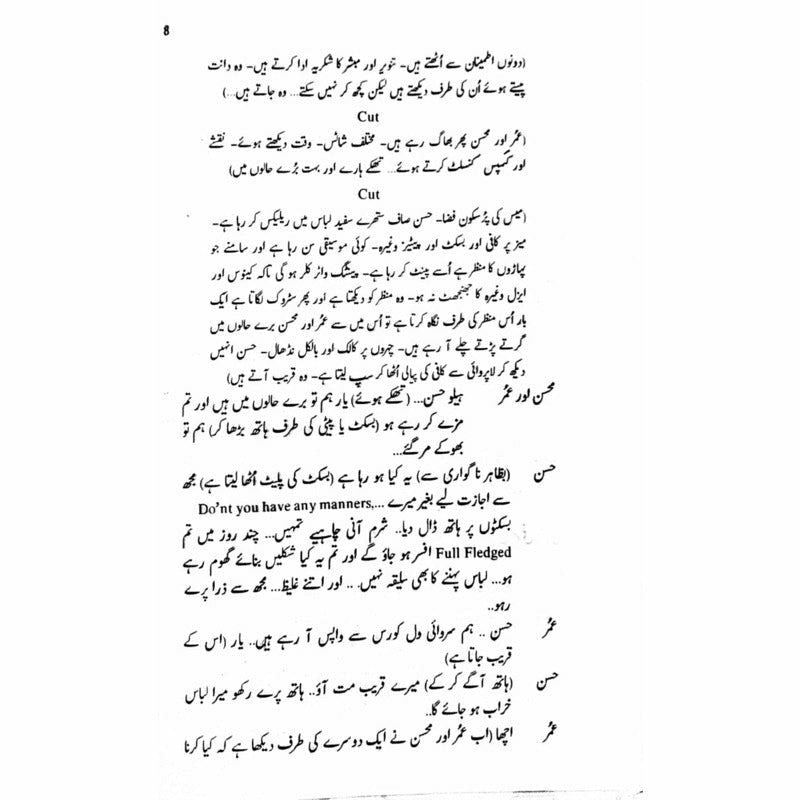 8
(دونوں اطمینان سے اُٹھتے ہیں۔ تنویر اور مبشر کا شکریہ ادا کرتے ہیں۔ وہ دانت
پیستے ہوئے اُن کی طرف دیکھتے ہیں لیکن کچھ کر نہیں سکتے... وہ جاتے ہیں...)
Cut
(عمُر اور محسن پھر بھاگ رہے ہیں۔ مختلف شاٹس۔ وقت دیکھتے ہوئے۔ نقشے
اور کمپس کنسلٹ کرتے ہوئے... تھکے ہارے اور بہت بُرے حالوں میں)
Cut
(میس کی پُرسکون فضا۔ حسن صاف ستھرے سفید لباس میں ریلیکس کر رہا ہے۔
میز پر کافی اور بسکٹ اور پیٹیز وغیرہ۔ کوئی موسیقی سن رہا ہے اور سامنے جو
پہاڑوں کا منظر ہے اُسے پینٹ کر رہا ہے۔ پینٹنگ واٹر کلر ہو گی تاکہ کینوس اور
ایزل وغیرہ کا جھنجھٹ نہ ہو۔ وہ منظر کو دیکھتا ہے اور پھر سٹروک لگاتا ہے ایک
بار اُس منظر کی طرف نگاہ کرتا ہے تو اُس میں سے عمُر اور محسن برے حالوں میں
گرتے پڑتے چلے آ رہے ہیں۔ چہروں پر کالک اور بالکل نڈھال۔ حسن انہیں
دیکھ کر لاپروائی سے کافی کی پیالی اُٹھا کر سپ لیتا ہے۔ وہ قریب آتے ہیں)
محسن اور عمُر ہیلو حسن... (تھکے ہوئے) یار ہم تو برے حالوں میں ہیں اور تم
مزے کر رہے ہو (بسکٹ یا پیٹی کی طرف ہاتھ بڑھا کر) ہم تو
بھوکے مر گئے...
حسن (بظاہر ناگواری سے) یہ کیا ہو رہا ہے (بسکٹ کی پلیٹ اُٹھا لیتا ہے) مجھ
سے اجازت لیے بغیر میرے ...Do'nt you have any manners,
بسکٹوں پر ہاتھ ڈال دیا.. شرم آنی چاہیے تمہیں... چند روز میں تم
Full Fledged افسر ہو جاؤ گے اور تم یہ کیا شکلیں بنائے گھوم رہے
ہو... لباس پہننے کا بھی سلیقہ نہیں. .. اور اتنے غلیظ... مجھ سے ذرا پرے
رہو..
عمُر حسن .. ہم سروائی ول کورس سے واپس آ رہے ہیں.. یار (اس کے
قریب جاتا ہے)
حسن (ہاتھ آگے کر کے) میرے قریب مت آؤ.. ہاتھ پرے رکھو میرا لباس
خراب ہو جائے گا..
عمُر اچھا (اب عمُر اور محسن نے ایک دوسرے کی طرف دیکھا ہے کہ کیا کرنا